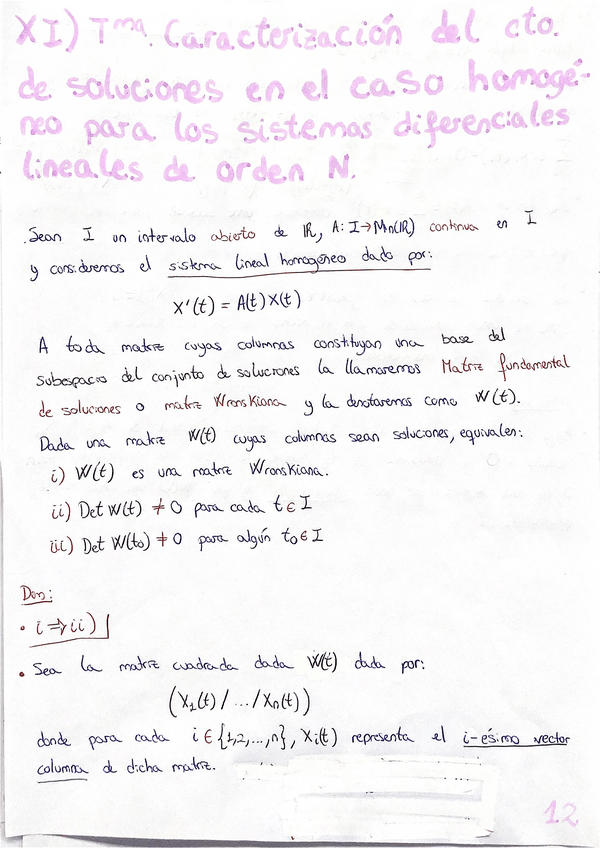 XI) Tma. Caracterización del cto.
de soluciones en el caso homogé-
neo para los sistemas diferenciales
lineales de orden N.
. Sean I un intervalo abierto de ℝ, A: I→Mn(ℝ) continua en I
y consideremos el sistema lineal homogéneo dado por:
X'(t) = A(t)X(t)
A toda matriz cuyas columnas constituyan una base del
subespacio del conjunto de soluciones la llamaremos Matriz fundamental
de soluciones o matriz Wronskiana y la denotaremos como W(t).
Dada una matriz W(t) cuyas columnas sean soluciones, equivalen:
i) W(t) es una matriz Wronskiana.
ii) Det W(t) ≠ 0 para cada t ∈ I
iii) Det W(t₀) ≠ 0 para algún t₀ ∈ I
Dem:
• i ⇒ ii)
• Sea la matriz cuadrada dada W(t) dada por:
(X₁(t) / ... / Xn(t))
donde para cada i ∈ {1,2,...,n}, Xi(t) representa el i-ésimo vector
columna de dicha matriz.
12